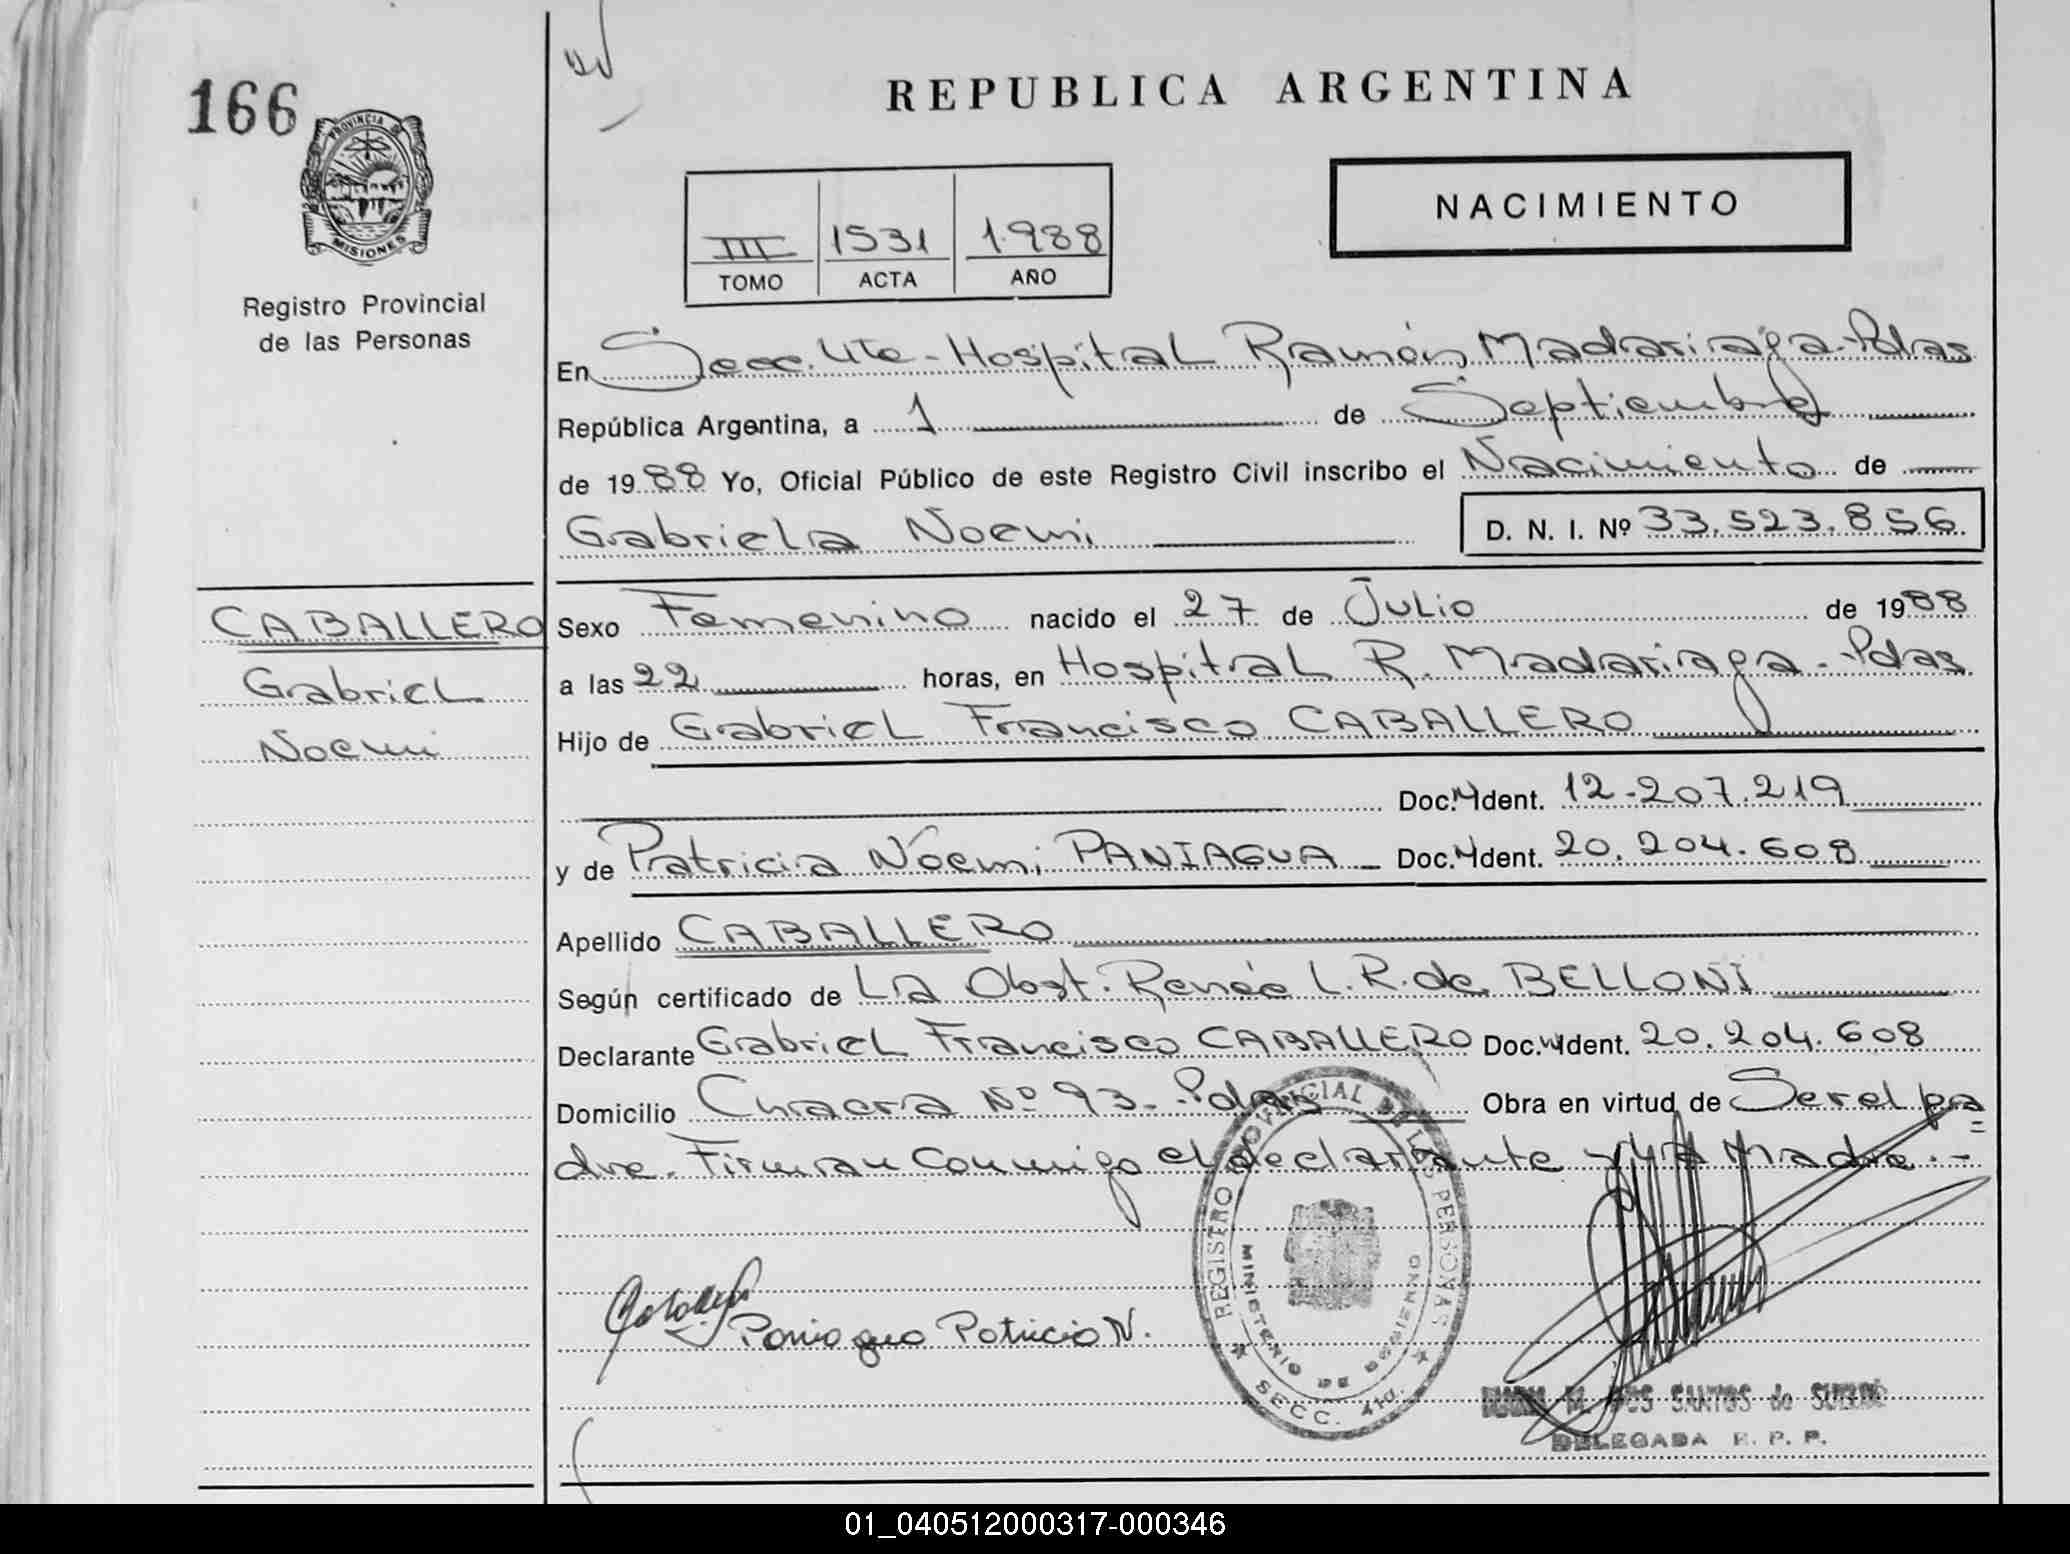 166
PROVINCIA DE
MISIONES
Registro Provincial
de las Personas
REPUBLICA ARGENTINA
NACIMIENTO
III 1531 1.988
TOMO ACTA AÑO
En Secc. 4ta - Hospital Ramón Madariaga - Pdas
República Argentina, a 1 de Septiembre
de 1988 Yo, Oficial Público de este Registro Civil inscribo el Nacimiento de
Gabriela Noemi D. N. I. Nº 33.523.856.
CABALLERO
Gabriel
Noemi
Sexo Femenino nacido el 27 de Julio de 1988
a las 22 horas, en Hospital R. Madariaga - Pdas.
Hijo de Gabriel Francisco CABALLERO
Doc. Ident. 12.207.219
y de Patricia Noemi PANIAGUA - Doc. Ident. 20.204.608
Apellido CABALLERO
Según certificado de La Obst. Renée L. R. de BELLONI
Declarante Gabriel Francisco CABALLERO Doc. Ident. 20.204.608
Domicilio Chacra Nº 93 - Pdas Obra en virtud de Ser el pa=
dre. Firman conmigo el declarante y la Madre.-
Paniagua Patricia N.
REGISTRO PROVINCIAL DE LAS PERSONAS
MINISTERIO DE GOBIERNO
SECC. 4ta.
M. DOS SANTOS de
DELEGADA R. P. P.
01_040512000317-000346